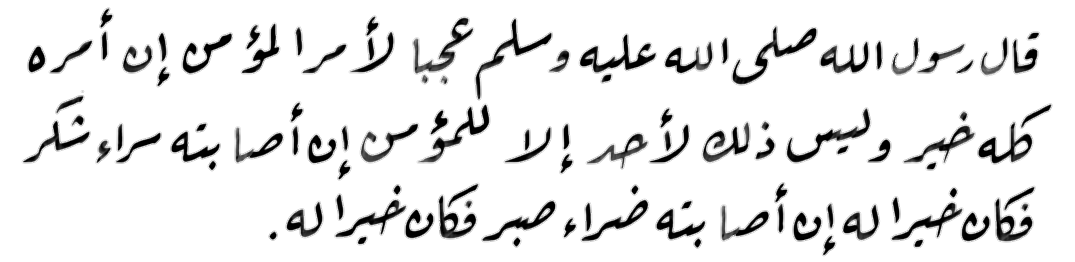 قال رسول الله صلى الله عليه وسلم عجبا لأمر المؤمن إن أمره
كله خير وليس ذلك لأحد إلا للمؤمن إن أصابته سراء شكر
فكان خيرا له إن أصابته ضراء صبر فكان خيرا له.